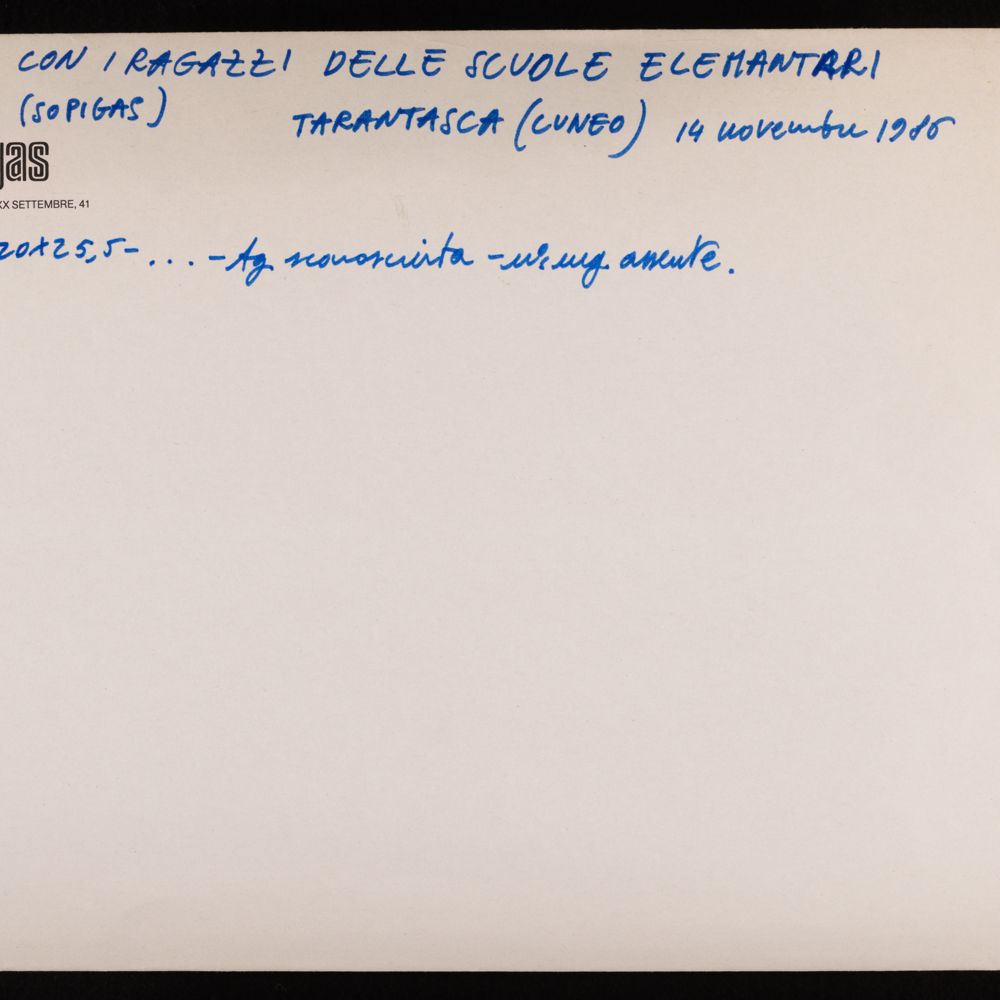 CON I RAGAZZI DELLE SCUOLE ELEMANTARI
(SOPIGAS) TARANTASCA (CUNEO) 14 novembre 1986
gas
XX SETTEMBRE, 41
20X25,5-...-Ag sconosciuta - assente.